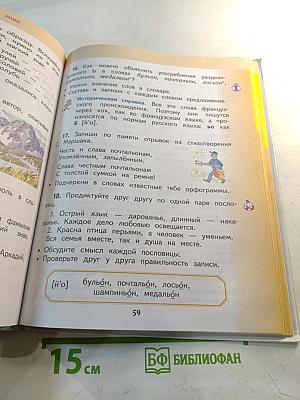 16. Как можно объяснить употребление раздели-
тельного Ь в словах бульон, почтальон, лосьон,
шампиньон, медальон?
Уточни значение слов в словаре.
Составь и запиши с каждым словом предложение.
Историческая справка. Все эти слова француз-
ского происхождения. Поэтому они пишутся
через «о», как во французском языке, а про-
износятся по нормам русского языка: ьо как
ё [й'о].
17. Запиши по памяти отрывок из стихотворения
Маршака.
Честь и слава почтальонам,
Утомлённым, запылённым,
Слава честным почтальонам
С толстой сумкой на ремне!
Подчеркни в словах известные тебе орфограммы.
18. Продиктуйте друг другу по одной паре посло-
1. Острый язык — дарованье, длинный — нака-
Каждое дело любовью освещается.
2. Красна птица перьями, а человек — уменьем.
Вся семья вместе, так и душа на месте.
Обсудите смысл каждой пословицы.
Проверьте друг у друга правильность записи.
[й'о] бульо́н, почтальо́н, лосьо́н,
шампиньо́н, медальо́н
59
автор,
Аркадий,
15 см
БФ БИБЛИОФАН